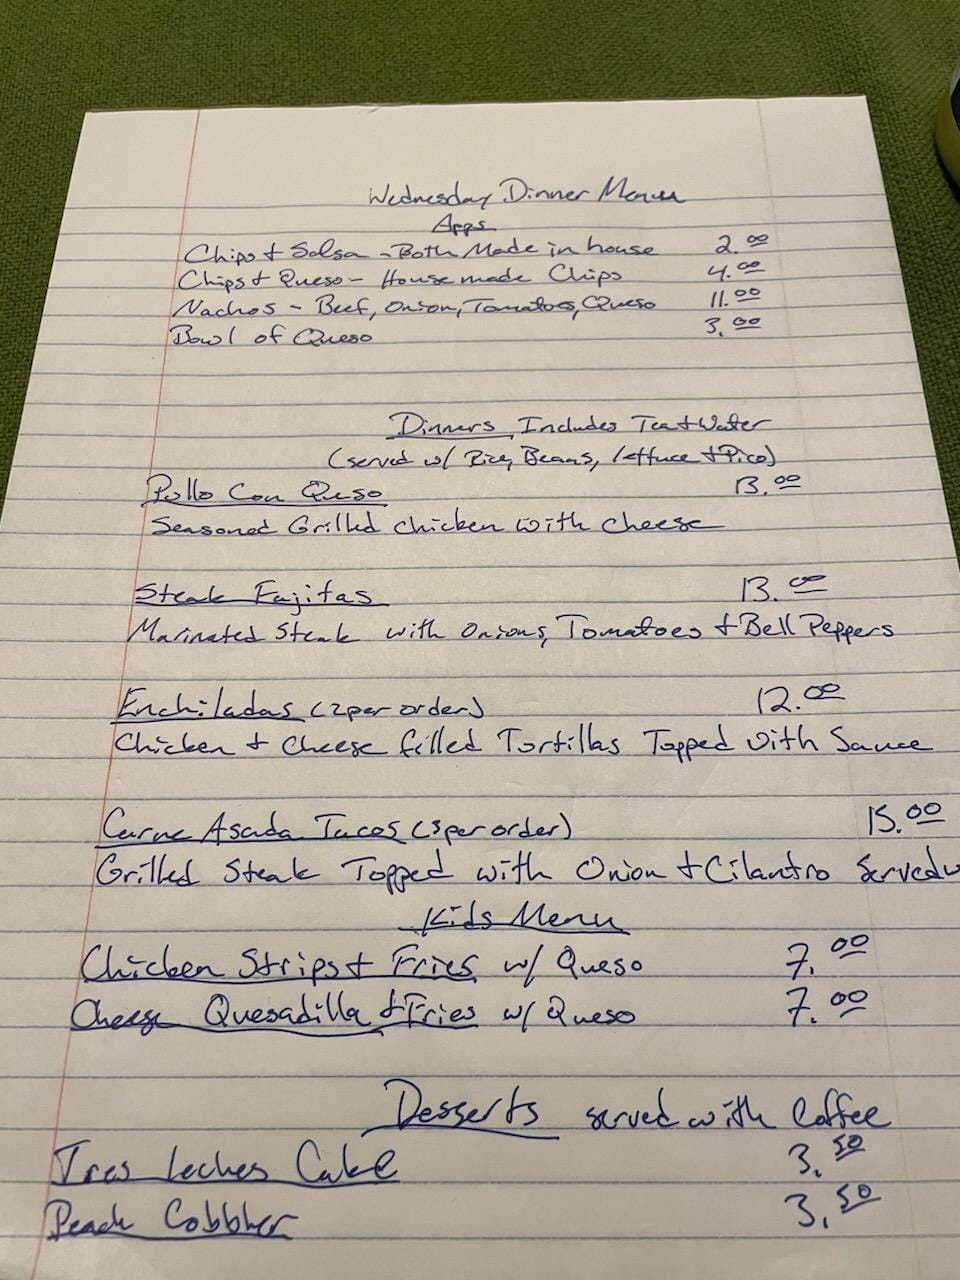 Wednesday Dinner Menu
Apps
Chips + Salsa - Both Made in house 2.00
Chips + Queso - House made Chips 4.00
Nachos - Beef, Onion, Tomatoes, Queso 11.00
Bowl of Queso 3.00
Dinners Includes Tea + Water
(served w/ Rice, Beans, lettuce + Pico)
Pollo Con Queso 13.00
Seasoned Grilled Chicken with Cheese
Steak Fajitas 13.00
Marinated Steak with Onions, Tomatoes + Bell Peppers
Enchiladas (2 per order) 12.00
Chicken + Cheese filled Tortillas Topped with Sauce
Carne Asada Tacos (3 per order) 15.00
Grilled Steak Topped with Onion + Cilantro Served
Kids Menu
Chicken Strips + Fries w/ Queso 7.00
Cheese Quesadilla + Fries w/ Queso 7.00
Desserts served with Coffee
Tres Leches Cake 3.50
Peach Cobbler 3.50